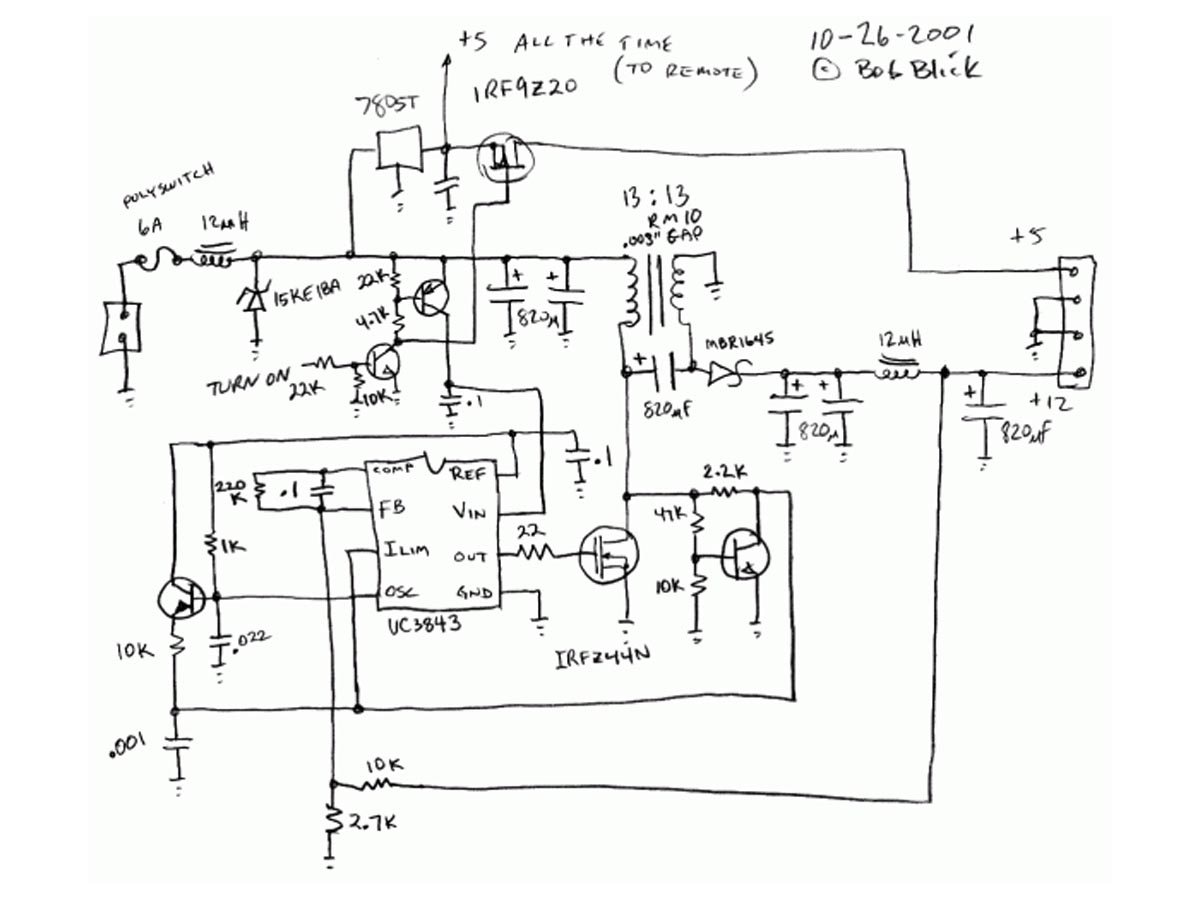 +5 ALL THE TIME
(TO REMOTE)
10-26-2001
© Bob Blick
IRF9Z20
7805T
POLYSWITCH
6A
12µH
13:13
RM10
.003" GAP
+5
15KE18A
22K
4.7K
+ +
820µ
MBR1645
12µH
TURN ON
22K
10K
.1
+
820µF
+ +
820µ
+
820µF
+12
.1
220
K
.1
COMP
REF
FB
VIN
ILIM
OUT
OSC
GND
UC3843
22
2.2K
47K
10K
1K
.022
10K
IRFZ44N
.001
10K
2.7K